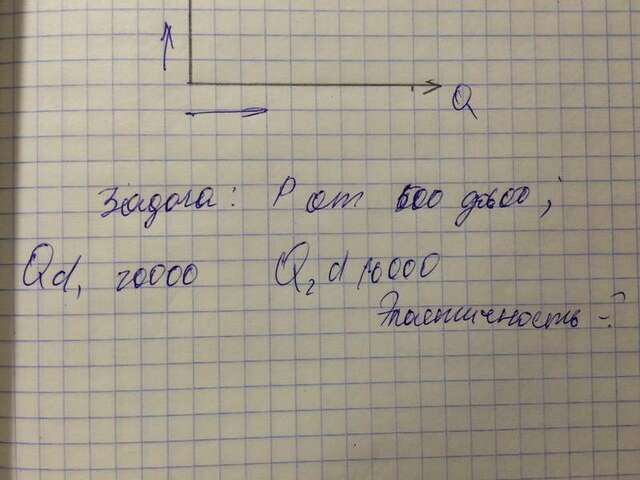 Q
Задача: P от 500 до 600;
Qd₁ 20000 Q₂d 16000
Эластичность - ?